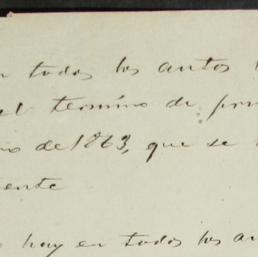 n todos los autos
el termino de pru
o de 1863, que se
ente
hay en todos los au